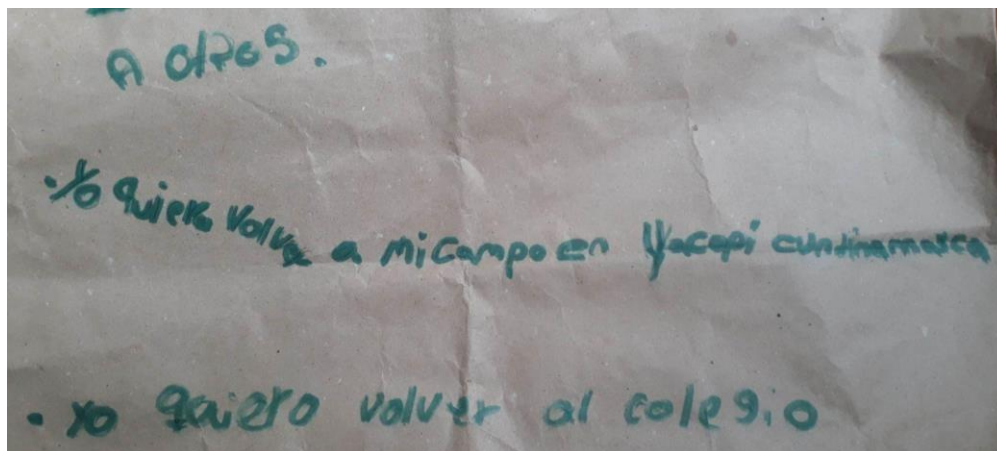 A otros.
· Yo quiero volver a mi campo en Yacopi cundinamarca
· Yo quiero volver al colegio